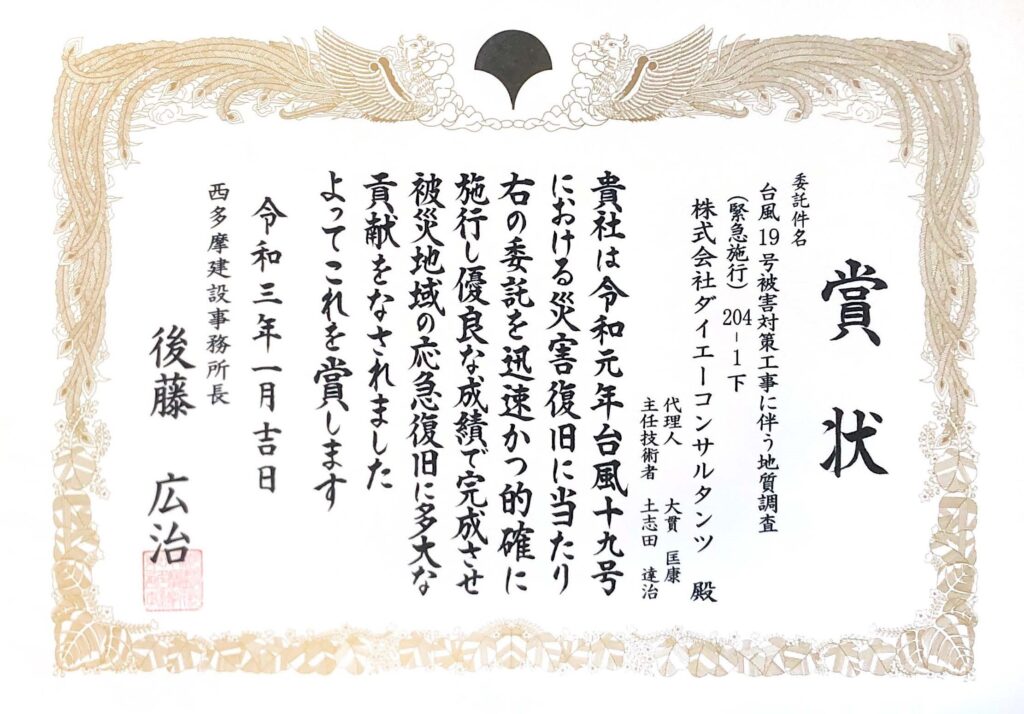 賞状
委託件名
台風19号被害対策工事に伴う地質調査
（緊急施行）204-1下
株式会社ダイエーコンサルタンツ 殿
代理人 大貫 匡康
主任技術者 土志田 達治
貴社は令和元年台風十九号
における災害復旧に当たり
右の委託を迅速かつ的確に
施行し優良な成績で完成させ
被災地域の応急復旧に多大な
貢献をなされました
よってこれを賞します
令和三年一月吉日
西多摩建設事務所長
後藤 広治